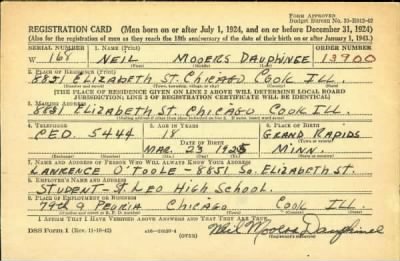 FORM APPROVED
Budget Bureau No. 33-R012-42
REGISTRATION CARD (Men born on or after July 1, 1924, and on or before December 31, 1924)
(Also for the registration of men as they reach the 18th anniversary of the date of their birth on or after January 1, 1943.)
SERIAL NUMBER 1. NAME ORDER NUMBER
W 168 NEIL MOOERS DAUPHINEE 13900
2. PLACE OF RESIDENCE
ELIZABETH ST. CHICAGO COOK ILL.
(THE PLACE OF RESIDENCE GIVEN ON LINE 2 ABOVE WILL DETERMINE LOCAL BOARD
JURISDICTION; LINE 2 OF REGISTRATION CERTIFICATE WILL BE IDENTICAL)
3. MAILING ADDRESS
ELIZABETH ST. CHICAGO COOK ILL.
4. TELEPHONE 5. AGE IN YEARS 6. PLACE OF BIRTH
CED. 5444 18 GRAND RAPIDS
DATE OF BIRTH
MAR. 23 1925 MINN.
7. NAME AND ADDRESS OF PERSON WHO WILL ALWAYS KNOW YOUR ADDRESS
LAWRENCE O'TOOLE - 8851 SO. ELIZABETH ST.
8. EMPLOYER'S NAME AND ADDRESS
STUDENT - ST. LEO HIGH SCHOOL.
9. PLACE OF EMPLOYMENT OR BUSINESS
79TH & PEORIA CHICAGO COOK ILL.
I AFFIRM THAT I HAVE VERIFIED ABOVE ANSWERS AND THAT THEY ARE TRUE.
DSS Form 1 (Rev. 11-16-42) (OVER) Neil Mooers Dauphinee